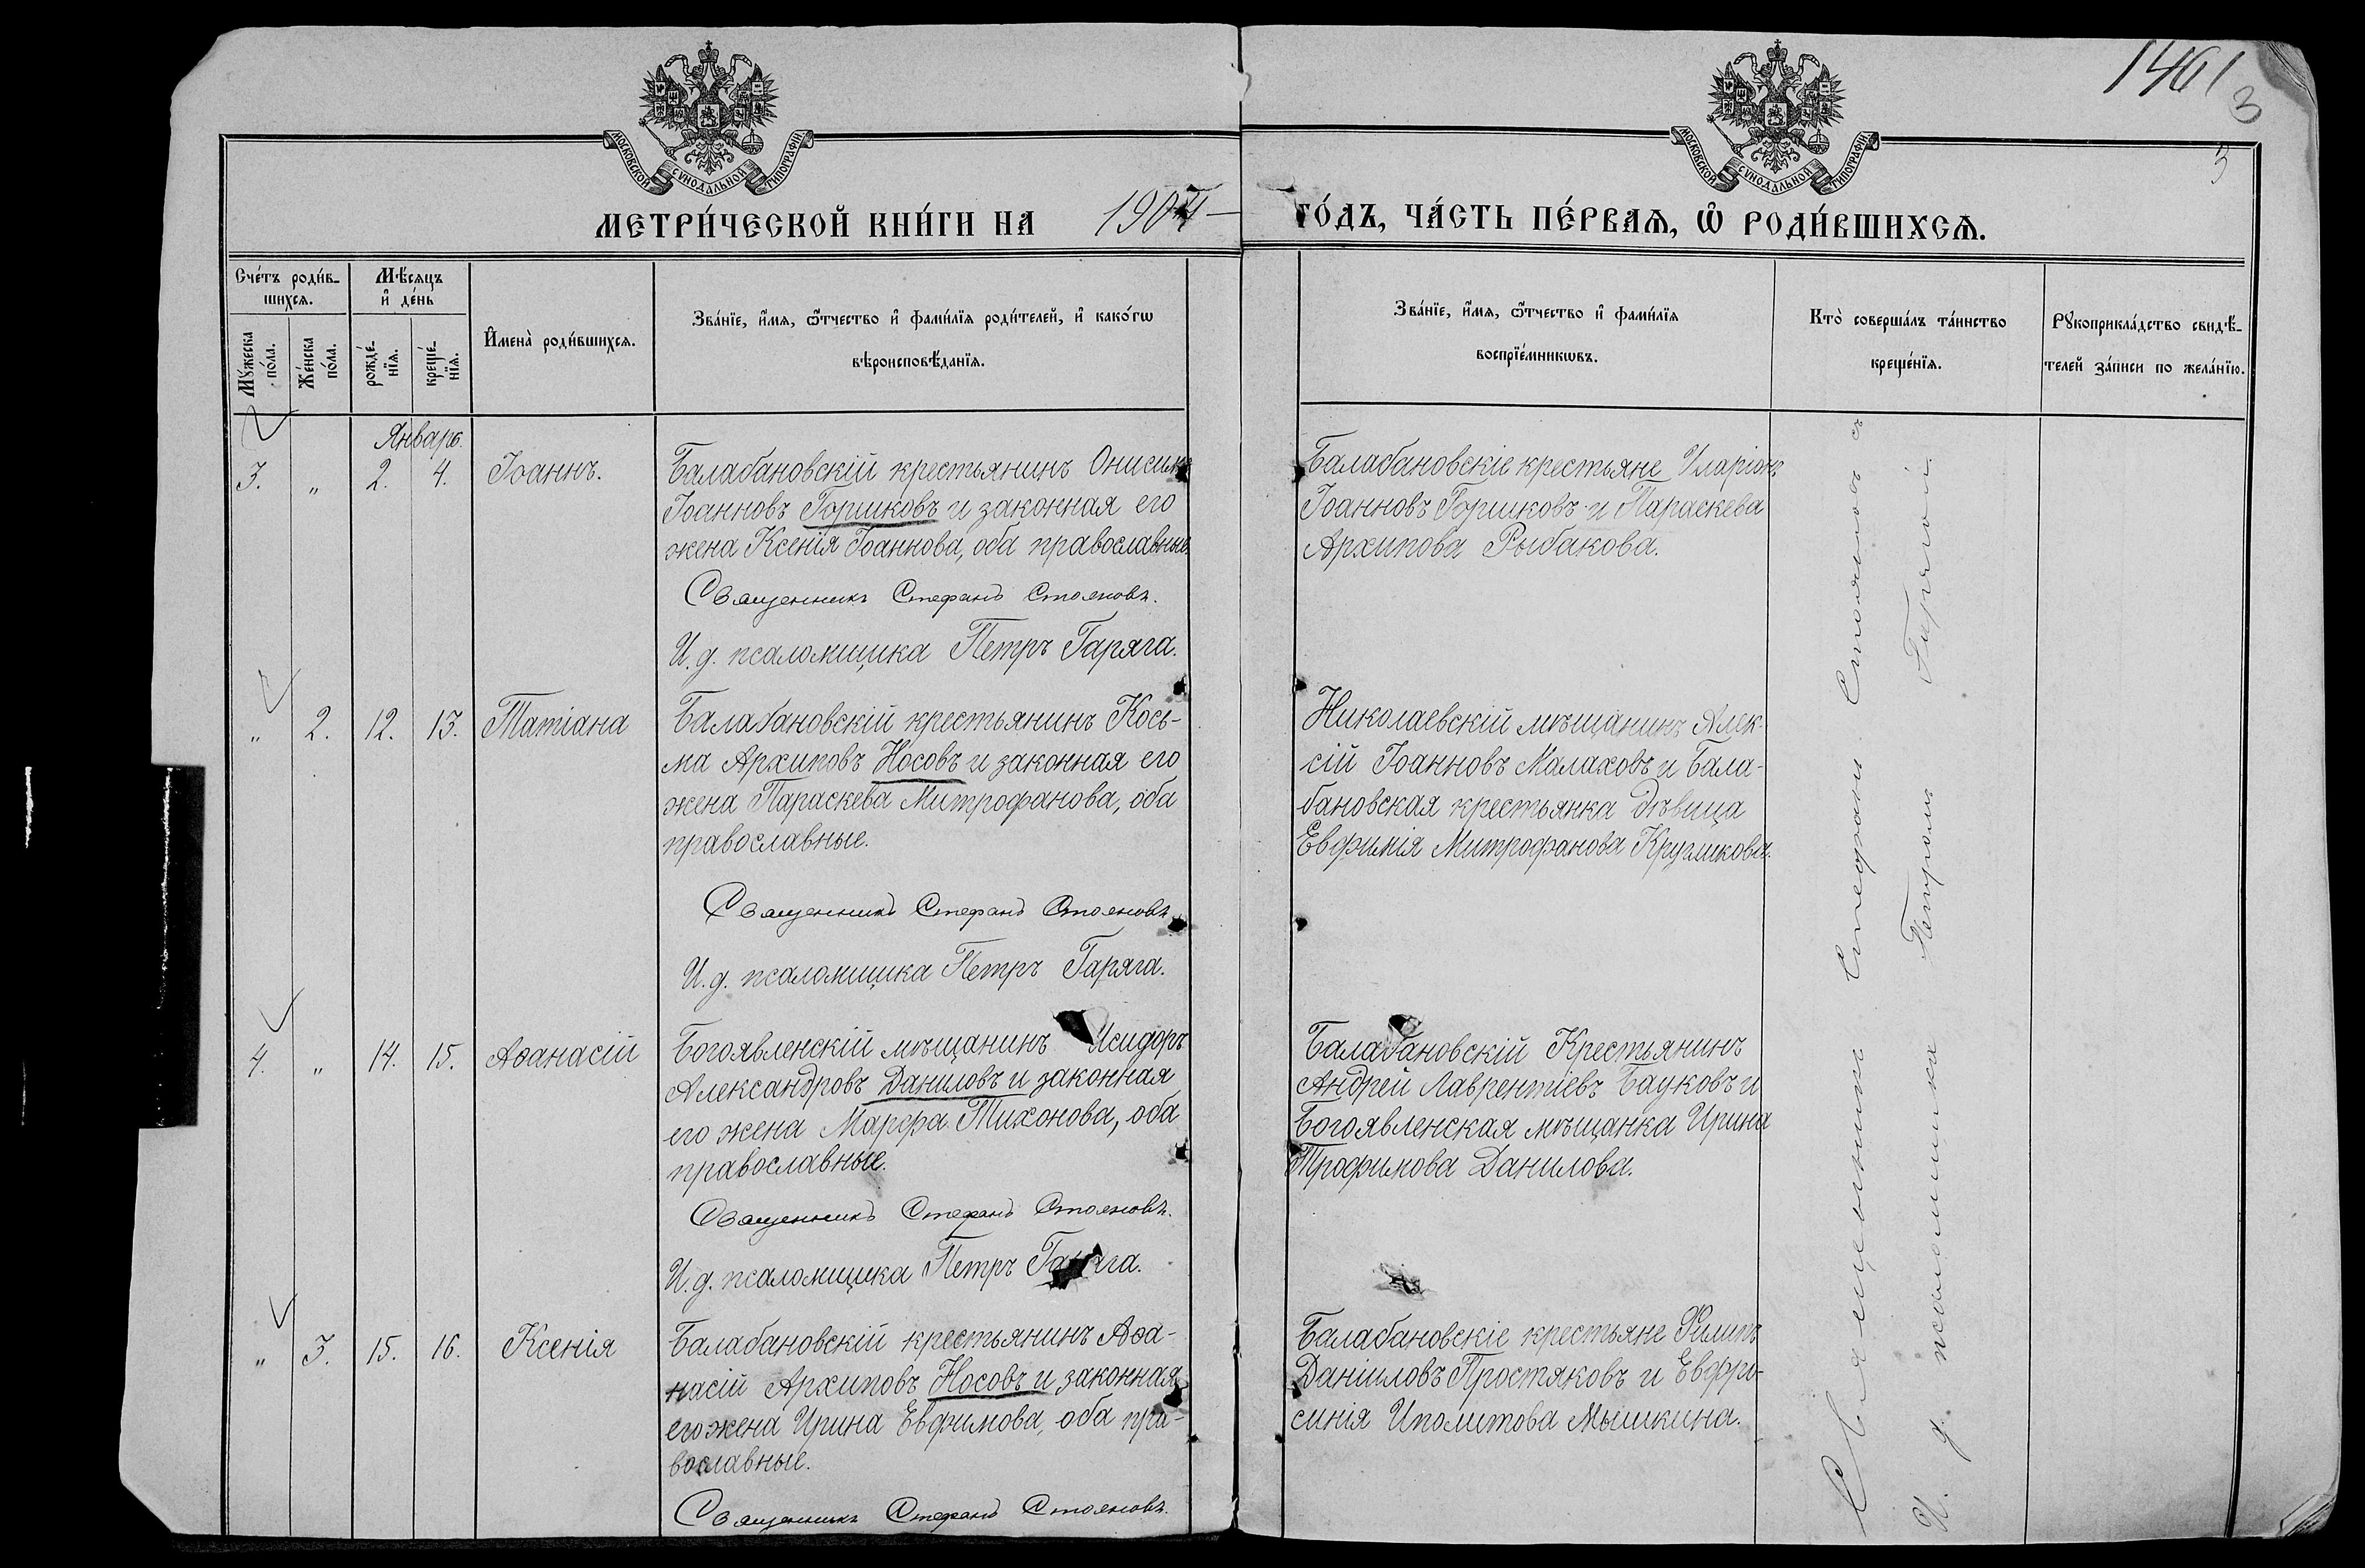 1461
3
3
МОСКОВСКОЙ СѴНОДАЛЬНОЙ ТИПОГРАФІИ
МОСКОВСКОЙ СѴНОДАЛЬНОЙ ТИПОГРАФІИ
МЕТРИ́ЧЕСКОЙ КНИ́ГИ НА 1904 ГО́ДЪ, ЧА́СТЬ ПЕ́РВАѦ, Ѽ РОДИ́ВШИХСѦ.
Сче́тъ роди́в-
шихсѧ.
Мꙋ́жеска
по́ла.
Же́нска
по́ла.
Мѣ́сѧцъ
и҆ де́нь
рожде́-
нїѧ.
креще́-
нїѧ.
И҆мена̀ роди́вшихсѧ.
Зва́нїе, и҆́мѧ, ѻ҆́тчество и҆ фами́лїѧ роди́телей, и҆ како́гѡ
вѣроисповѣ́данїѧ.
Зва́нїе, и҆́мѧ, ѻ҆́тчество и҆ фами́лїѧ
воспрїе́мникѡвъ.
Кто̀ соверша́лъ та́инство
креще́нїѧ.
Рꙋкоприкла́дство свидѣ́-
телей за́писи по жела́нїю.
Январь.
3. „ 2. 4. Іоаннъ.
Балабановскій крестьянинъ Онисимъ
Іоанновъ Горшковъ и законная его
жена Ксенія Іоаннова, оба православные
Священникъ Стефанъ Стояновъ.
И. д. псаломщика Петръ Гаряга.
Балабановскіе крестьяне Иларіонъ
Іоанновъ Горшковъ и Параскева
Архипова Рыбакова.
„ 2. 12. 13. Татіана
Балабановскій крестьянинъ Кось-
ма Архиповъ Носовъ и законная его
жена Параскева Митрофанова, оба
православные.
Священникъ Стефанъ Стояновъ
И. д. псаломщика Петръ Гаряга.
Николаевскій мѣщанинъ Алек-
сій Іоанновъ Малаховъ и Бала-
бановская крестьянка дѣвица
Евфимія Митрофанова Кругликова.
4. „ 14. 15. Аѳанасій
Богоявленскій мѣщанинъ Исидоръ
Александровъ Даниловъ и законная
его жена Марфа Тихонова, оба
православные.
Священникъ Стефанъ Стояновъ.
И. д. псаломщика Петръ Гаряга.
Балабановскій Крестьянинъ
Андрей Лаврентіевъ Бауковъ и
Богоявленская мѣщанка Ирина
Трофимова Данилова.
„ 3. 15. 16. Ксенія
Балабановскій крестьянинъ Аѳа-
насій Архиповъ Носовъ и законная
его жена Ирина Евфимова, оба пра-
вославные.
Священникъ Стефанъ Стояновъ.
Балабановскіе крестьяне Филипъ
Даніиловъ Простяковъ и Евфро-
синія Иполитова Мышкина.
Священникъ Стефанъ Стояновъ съ
И. д. псаломщика Петромъ Гарягой.